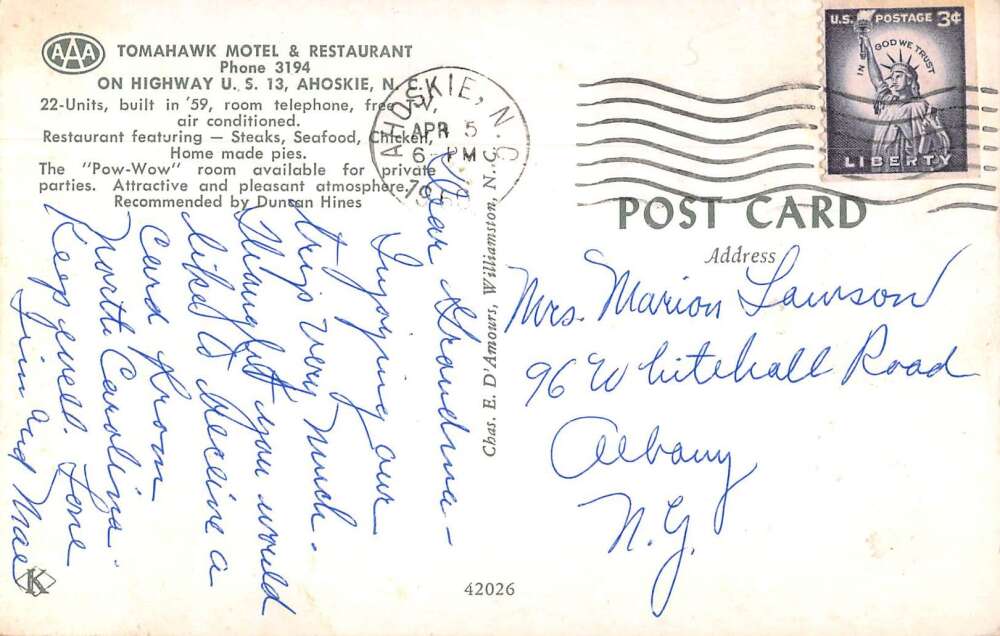 AAA
TOMAHAWK MOTEL & RESTAURANT
Phone 3194
ON HIGHWAY U. S. 13, AHOSKIE, N. C.
22-Units, built in '59, room telephone, free TV,
air conditioned.
Restaurant featuring — Steaks, Seafood, Chicken,
Home made pies.
The "Pow-Wow" room available for private
parties. Attractive and pleasant atmosphere.
Recommended by Duncan Hines
Dear Grandma -
Injoying our
trip very much.
Thought you would
liked to receive a
card from
North Carolina.
Keep well. Love
Jim and Mae
K
Chas. E. D'Amours, Williamston, N. C.
AHOSKIE, N. C.
APR 5
6 PM
U.S. POSTAGE 3¢
IN GOD WE TRUST
LIBERTY
POST CARD
Address
Mrs. Marion Lawson
96 Whitehall Road
Albany
N.Y.
42026